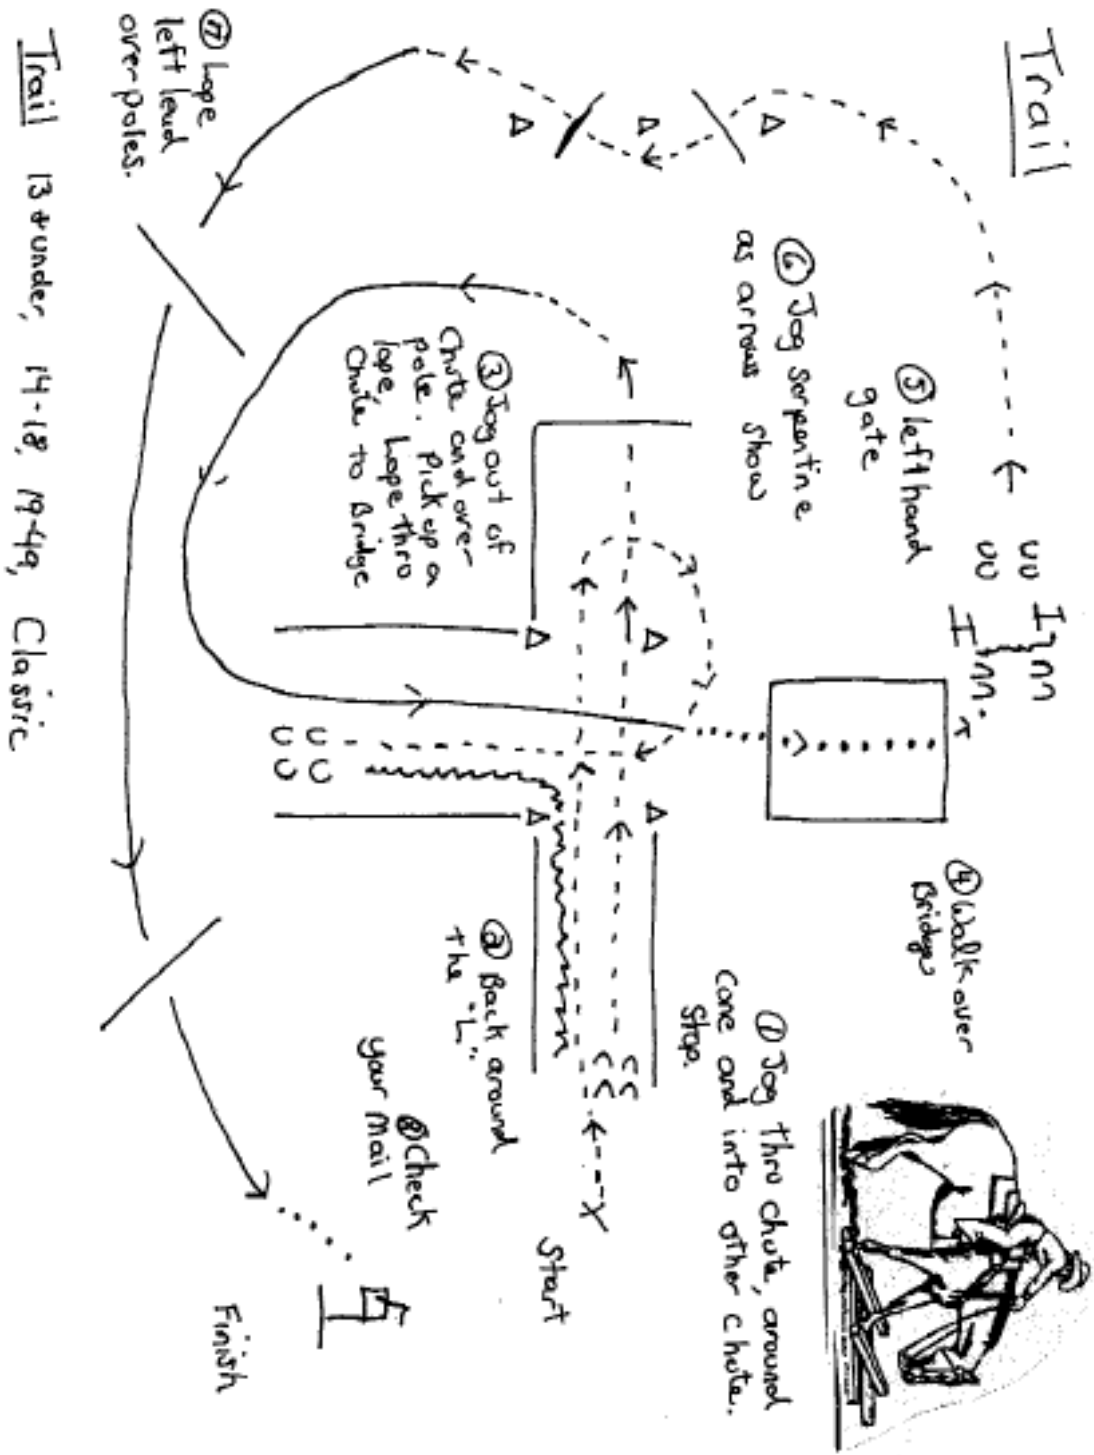 Trail
① Jog thru chute, around
cone and into other chute.
Stop.
② Back around
the "L".
③ Jog out of
Chute and over
pole. Pick up a
lope, Lope thro
Chute to Bridge
④ Walk over
Bridge
⑤ left hand
gate
⑥ Jog serpentine
as arrows show
⑦ Lope
left lead
over poles.
⑧ Check
your mail
Start
Finish
Trail 13 & under, 14-18, 19-49, Classic